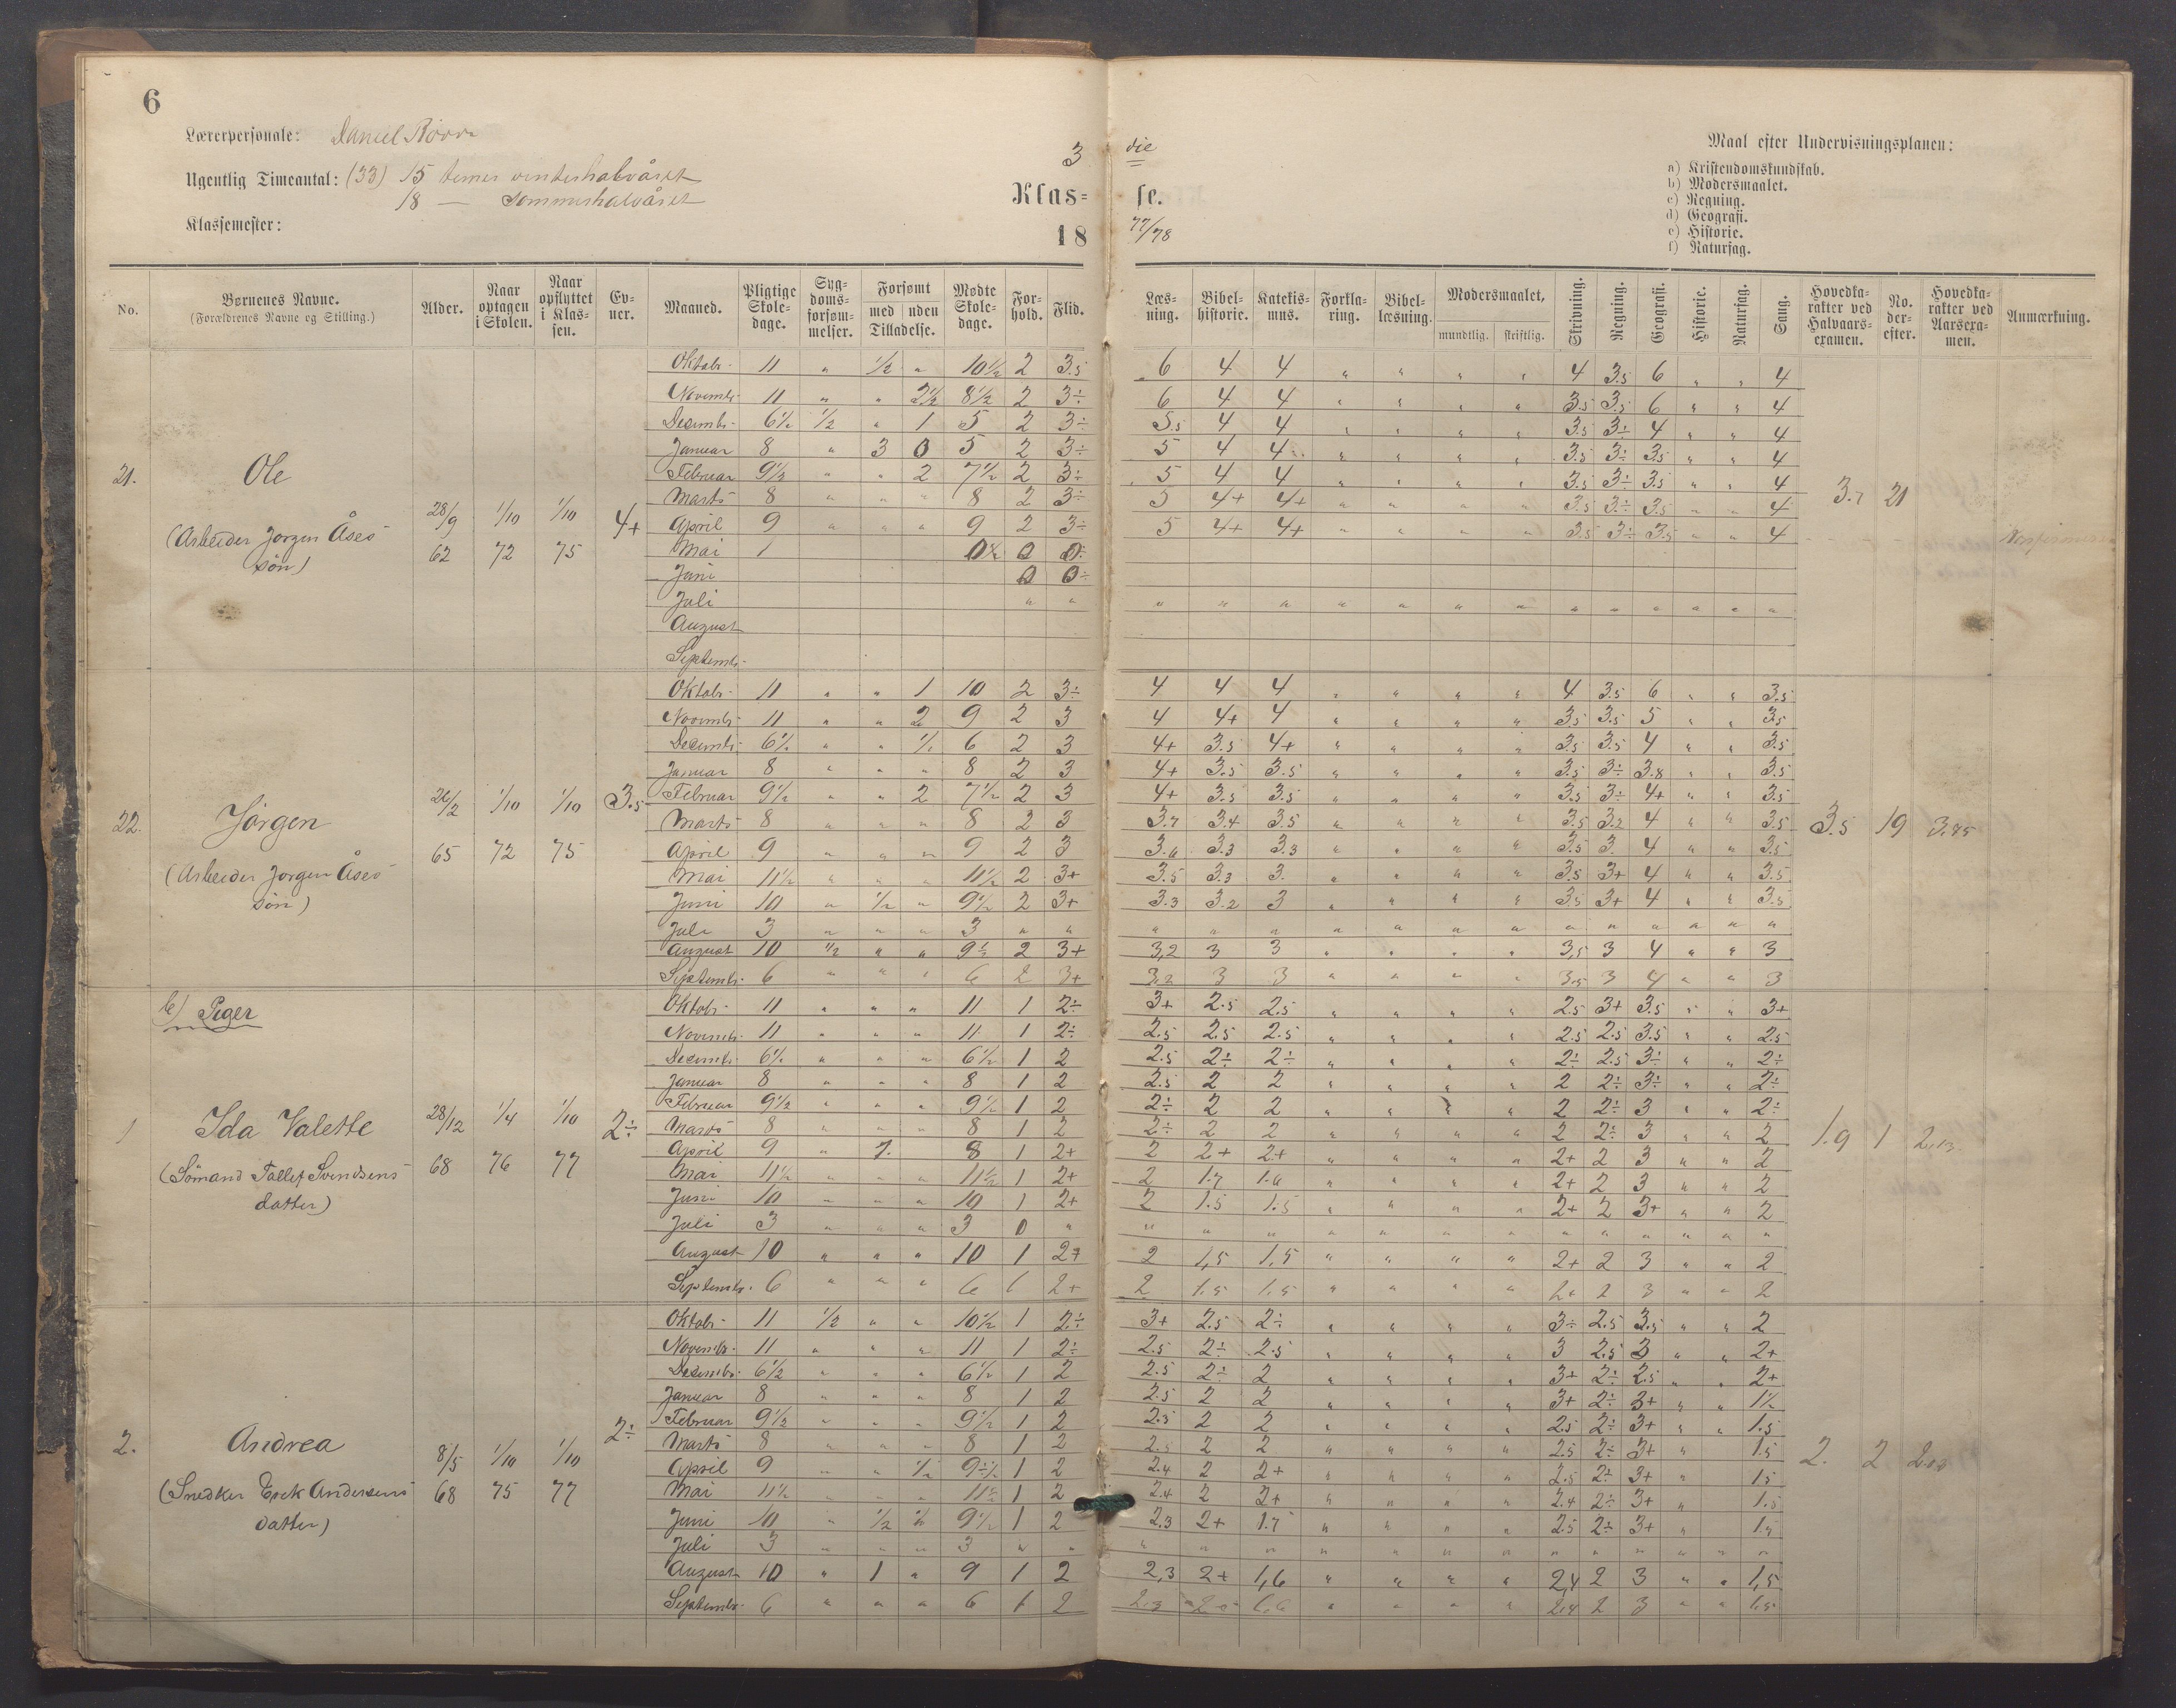 6
Lærerpersonale: Daniel
Ugentlig Timeantal: (33) 15 timer vinterhalvåret
18 — sommerhalvåret
Klassemester:
3 die
Klas= se.
18 77/78
Maal efter Undervisningsplanen:
a) Kristendomskundskab.
b) Modersmaalet.
c) Regning.
d) Geografi.
e) Historie.
f) Naturfag.
No. Børnenes Navne. (Forældrenes Navne og Stilling.) Alder. Naar optagen i Skolen. Naar opflyttet i Klassen. Evner. Maaned. Pligtige Skoledage. Sygdomsforsømmelser. Forsømt med uden Tilladelse. Mødte Skoledage. Forhold. Flid. Læsning. Bibelhistorie. Katekismus. Forklaring. Bibellæsning. Modersmaalet, mundtlig. skriftlig. Skrivning. Regning. Geografi. Historie. Naturfag. Sang. Hovedkarakter ved Halvaarsexamen. No. derefter. Hovedkarakter ved Aarsexamen. Anmærkning.
21. Ole (Arbeider Jorgen Åses sön) 28/9 62 1/10 72 1/10 75 4+ 3.7 21
Oktobr. 11 " 1/2 " 10 1/2 2 3.5 6 4 4 " " " " 4 3.5 6 " " 4
Novembr. 11 " " 2 1/2 8 1/2 2 3÷ 6 4 4 " " " " 3.5 3.5 6 " " 4
Decembr. 6 1/2 1/2 " 1 5 2 3÷ 5.5 4 4 " " " " 3.5 3÷ 4 " " 4
Januar 8 " 3 0 5 2 3÷ 5 4 4 " " " " 3.5 3÷ 3.5 " " 4
Februar 9 1/2 " " 2 7 1/2 2 3÷ 5 4 4 " " " " 3.5 3÷ 3.5 " " 4
Marts 8 " " " 8 2 3÷ 5 4+ 4+ " " " " 3.5 3÷ 3.5 " " 4
April 9 " " " 9 2 3÷ 5 4+ 4+ " " " " 3.5 3÷ 3.5 " " 4
Mai 1
Juni
Juli " " " " " " " " " " " " " " "
August
Septembr.
22. Jörgen (Arbeider Jorgen Åses sön) 26/2 65 1/10 72 1/10 75 3.5 3.5 19
Oktobr. 11 " " 1 10 2 3÷ 4 4 4 " " " " 4 3.5 6 " " 3.5
Novembr. 11 " " 2 9 2 3 4 4+ 4 " " " " 3.5 3.5 5 " " 3.5
Decembr. 6 1/2 " " 1/2 6 2 3 4+ 3.5 4+ " " " " 3.5 3.5 4 " " 3.5
Januar 8 " " " 8 2 3 4+ 3.5 3.5 " " " " 3.5 3÷ 3.8 " " 3.5
Februar 9 1/2 " " 2 7 1/2 2 3 4+ 3.5 3.5 " " " " 3.5 3÷ 4+ " " 3.5
Marts 8 " " " 8 2 3 3.7 3.4 3.5 " " " " 3.5 3.2 4 " " 3.5
April 9 " " " 9 2 3 3.6 3.3 3.3 " " " " 3.5 3. 4 " " 3.5
Mai 11 1/2 " " " 11 1/2 2 3+ 3.5 3.3 3. " " " " 3.5 3+ 4 " " 3.5
Juni 10 " 1/2 " 9 1/2 2 3+ 3.3 3.2 3 " " " " 3.5 3+ 4 " " 3.5
Juli 3 " " " 3 " " " " " " " " " " " " " " "
August 10 1/2 " " 9 1/2 2 3+ 3,2 3 3 " " " " 3,5 3 4 " " 3
Septembr. 6 " " " 6 2 3+ 3.2 3 3 " " " " 3.5 3 4 " " 3
b) Piger
1 Ida Valette (Sömand Tallef Svendsens datter) 28/12 68 1/4 76 1/10 77 2÷ 1.9 1 2.13
Oktobr. 11 " " " 11 1 2÷ 3+ 2.5 2.5 " " " " 2.5 3+ 3.5 " " 3+
Novembr. 11 " " " 11 1 2÷ 2.5 2.5 2.5 " " " " 2.5 2.5 3.5 " " 2.5
Decembr. 6 1/2 " " " 6 1/2 1 2 2.5 2÷ 2÷ " " " " 2÷ 2.5 3÷ " " 2÷
Januar 8 " " " 8 1 2 2.5 2 2 " " " " 2 2÷ 3÷ " " 2÷
Februar 9 1/2 " " " 9 1/2 1 2 2÷ 2 2 " " " " 2 2÷ 3 " " 2÷
Marts 8 " " " 8 1 2 2÷ 2 2 " " " " 2 2÷ 3 " " 2
April 9 " 1. 8 1 2+ 2 2+ 2+ " " " " 2+ 2 3 " " 2
Mai 11 1/2 " " " 11 1/2 1 2+ 2 1.7 1.6 " " " " 2+ 2 3 " " 2
Juni 10 " " " 10 1 2+ 2 1.5 1.5 " " " " 2+ 2 3+ " " 2
Juli 3 " " " 3 0 " " " " " " " " " " " " " "
August 10 " " " 10 1 2+ 2 1,5 1,5 " " " " 2+ 2 3 " " 2
Septembr. 6 " " " 6 1 2+ 2 1.5 1.5 " " " " 2+ 2 3 " " 2
2. Andrea (Snedker Erik Andersens datter) 8/5 68 1/10 75 1/10 77 2÷ 2. 2
Oktobr. 11 1/2 " " 10 1/2 1 2÷ 3+ 2.5 2÷ " " " " 3÷ 2.5 3.5 " " 2
Novembr. 11 " " " 11 1 2÷ 2.5 2÷ 2.5 " " " " 3 2.5 3 " " 2+
Decembr. 6 1/2 " " " 6 1/2 1 2 2.5 2÷ 2 " " " " 3+ 2÷ 2.5 " " 2+
Januar 8 " " " 8 1 2 2.5 2 2 " " " " 3+ 2÷ 3+ " " 1 1/2
Februar 9 1/2 " " " 9 1/2 1 2 2.5 2 2 " " " " 2.5 2÷ 3+ " " 1.5
Marts 8 " " " 8 1 2 2.5 2 2 " " " " 2.5 2÷ 3+ " 1.5
April 9 " " 1/2 1 2 2.4 2 2+ " " " " 2.5 2÷ 3+ " 1.5
Mai 11 1/2 " " " 11 1/2 1 2 2.4 2 2+ " " " " 2.4 2÷ 3+ " 1.5
Juni 10 " 1/2 9 1/2 1 2 2.3 2+ 1.7 " " " " 2.5 2÷ 3+ " 1.5
Juli 3 " " " 3 " " " " " " " " " " " " " " "
August 10 " 1 " 9 1 2 2,3 2+ 1,6 " " " " 2,4 2 3 " " 1,5
Septembr. 6 " " " 6 1 2 2.3 " " " " 2.4 2 3 " " 1.5